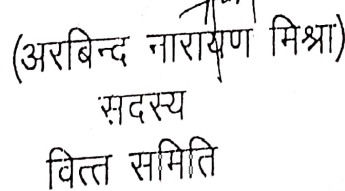 (अरबिन्द नारायण मिश्रा)
सदस्य
वित्त समिति